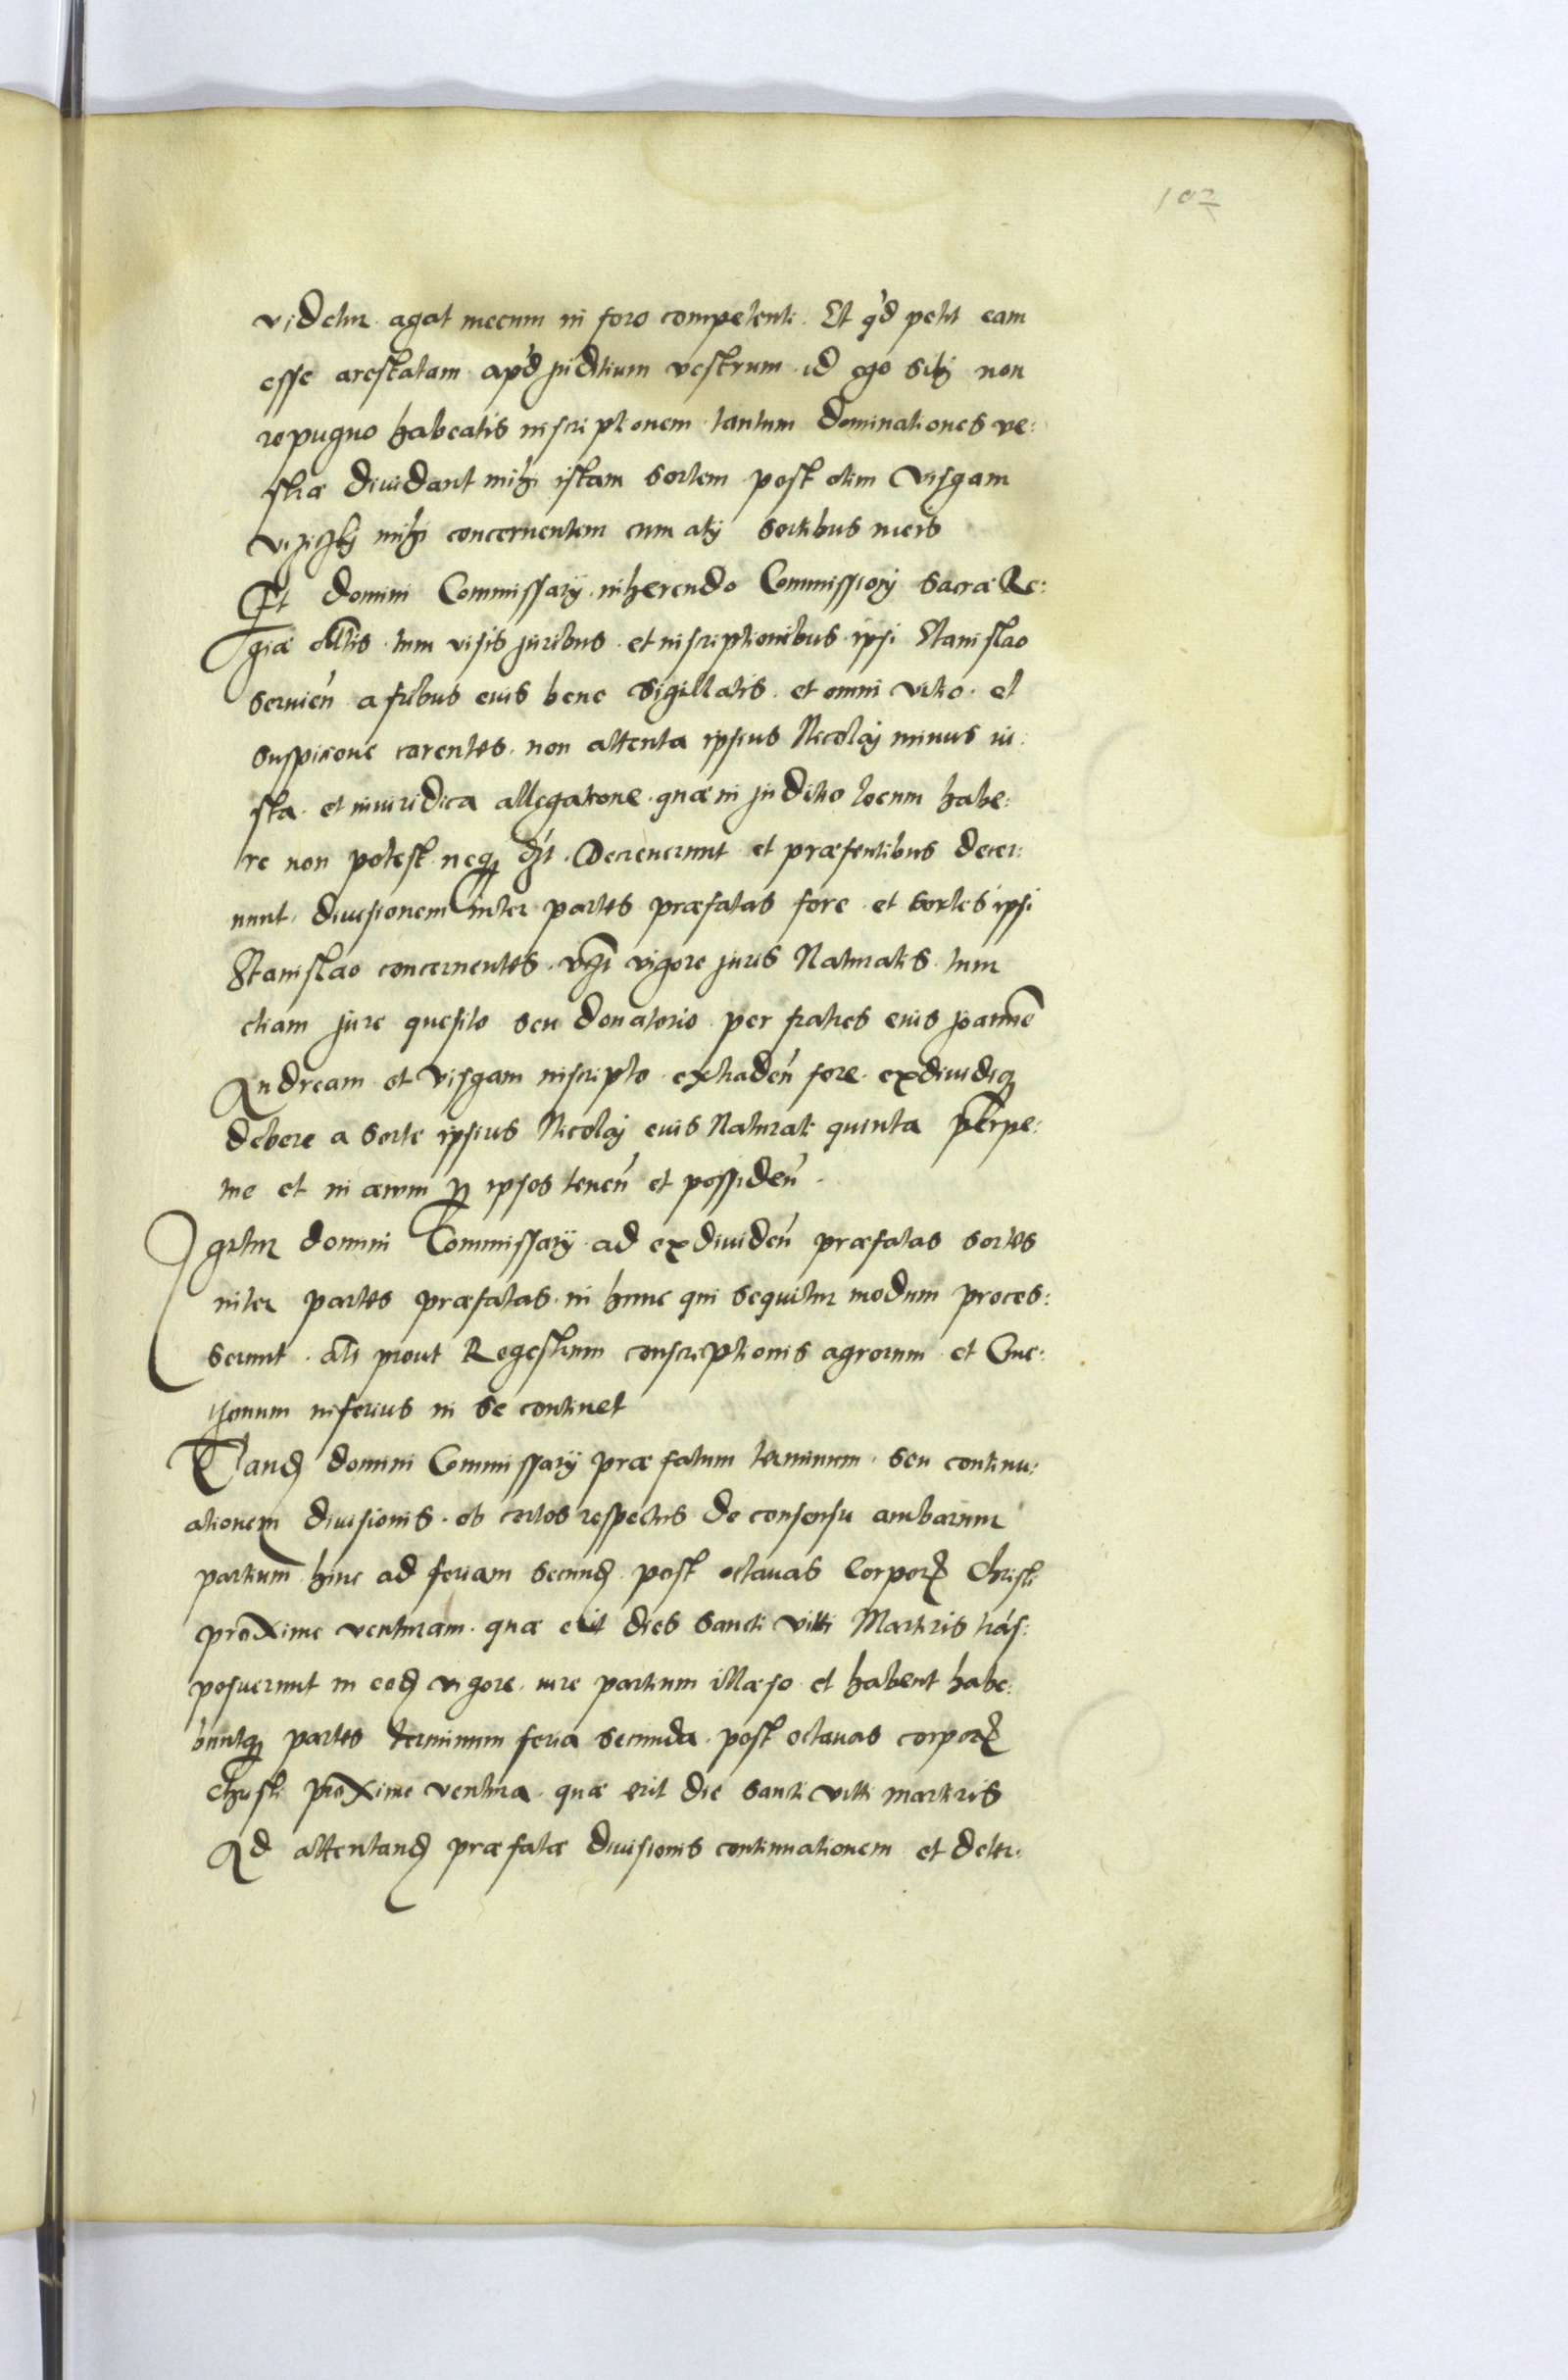 102
videtur agat mecum in foro competenti. Et q'd petit eam
esse arestatam ap'd juditium vestrum id ego sibj non
repugno habeatis inscriptionem tantum dominationes ve:
stræ diuidant mihi istam sortem post olim Visgam
mihi concernentem cum alij sortibus meis
Et domini Commissarij inherendo Commissionj Sacræ Re:
giæ tum visis juribus et inscriptionibus ipsi Stanislao
seruien̄ a fribus eius bene sigillatis et omni vitio et
suspicione carentes non attenta ipsius Nicolaj minus iu:
sta et iniuridica allegatione quæ in juditio locum habe:
re non potest neq Decreuerunt et præsentibus decer:
nunt diuisionem inter partes præfatas fore et sortes ipsi
Stanislao concernentes vigore juris Naturalis tum
etiam jure quesito seu donatorio per fratres eius joannē
Andream et Visgam inscripto extraden̄ fore exdiuidiq
debere a sorte ipsius Nicolaj eius Naturali quinta perpe:
tue et in æuum per ipsos tenen̄ et possiden̄.
Igitur domini Commissarij ad exdiuiden̄ præfatas sortes
inter partes præfatas in hunc qui sequitur modum proces:
serunt prout Regestrum conscriptionis agrorum et Cme:
tonum inferius in se continet
Tand domini Commissarij præfatum terminum seu continu:
ationem diuisionis ob certos respectus de consensu ambarum
partium hinc ad feriam secund post octauas Corporis Christi
proxime venturam quæ erit dies sancti Vitti Martiris trās:
posuerunt in eod vigore iure partium illæso et habent habe:
buntq partes terminum feria secunda post octauas corporis
Christi proxime ventura quæ erit die sancti Vitti martiris
Ad attentand præfatæ diuisionis continuationem et deter: